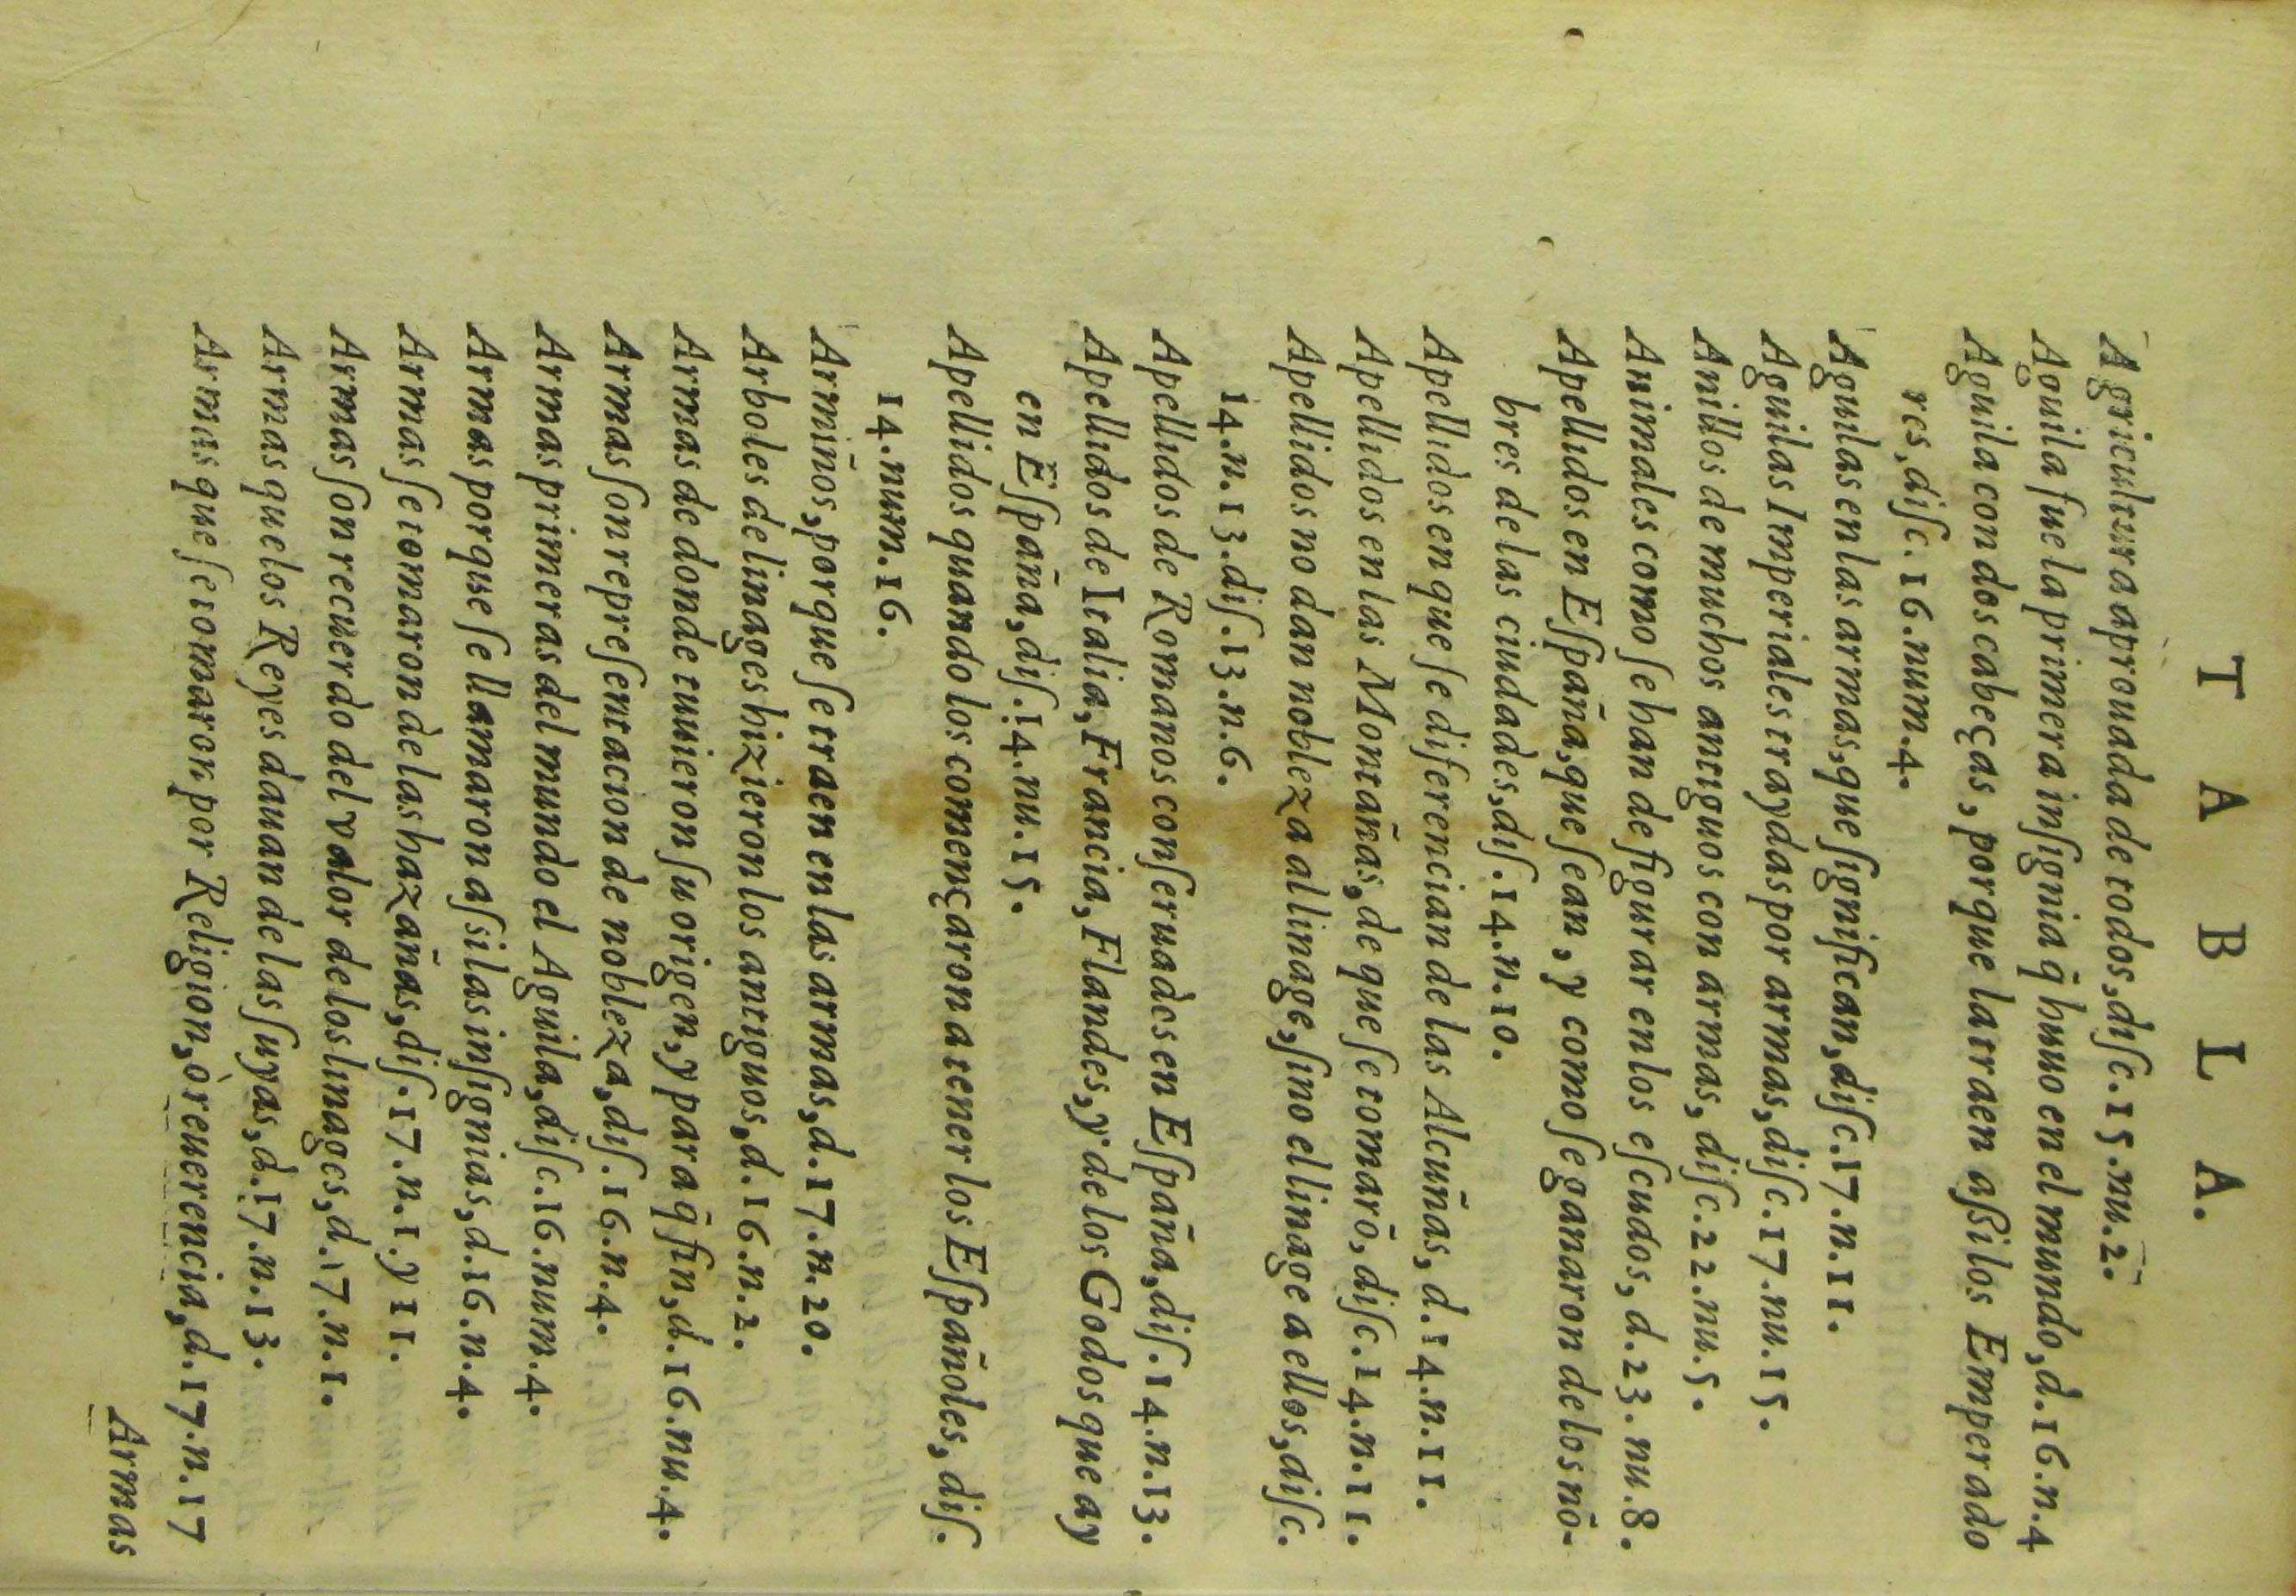 TABLA.
Agricultura aprouada de todos, disc. 15. nu. 2.
Aguila fue la primera insignia q̃ huuo en el mundo, d. 16. n. 4
Aguila con dos cabeças, porque la traen aßi los Emperado
res, disc. 16. num. 4.
Aguilas en las armas, que significan, disc. 17. n. 11.
Aguilas Imperiales traydas por armas, disc. 17. nu. 15.
Anillos de muchos antiguos con armas, disc. 22. nu. 5.
Animales como se han de figurar en los escudos, d. 23. nu. 8.
Apellidos en España, que sean, y como se ganaron de los nõ-
bres de las ciudades, dis. 14. n. 10.
Apellidos en que se diferencian de las Alcuñas, d. 14. n. 11.
Apellidos en las Montañas, de que se tomarõ, disc. 14. n. 11.
Apellidos no dan nobleza al linage, sino el linage a ellos, disc.
14. n. 13. dis. 13. n. 6.
Apellidos de Romanos conseruados en España, dis. 14. n. 13.
Apellidos de Italia, Francia, Flandes, y de los Godos que ay
en España, dis. 14. nu. 15.
Apellidos quando los començaron a tener los Españoles, dis.
14. num. 16.
Armiños, porque se traen en las armas, d. 17. n. 20.
Arboles de linages hizieron los antiguos, d. 16. n. 2.
Armas de donde tuuieron su origen, y para q̃ fin, d. 16. nu. 4.
Armas son representacion de nobleza, dis. 16. n. 4.
Armas primeras del mundo el Aguila, disc. 16. num. 4.
Armas porque se llamaron assi las insignias, d. 16. n. 4.
Armas se tomaron de las hazañas, dis. 17. n. 1. y 11.
Armas son recuerdo del valor de los linages, d. 17. n. 1.
Armas que los Reyes dauan de las suyas, d. 17. n. 13.
Armas que se tomaron por Religion, ò reuerencia, d. 17. n. 17
Armas